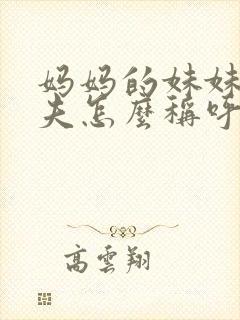 妈妈的妹妹
夫怎麼稱呼
高雲翔